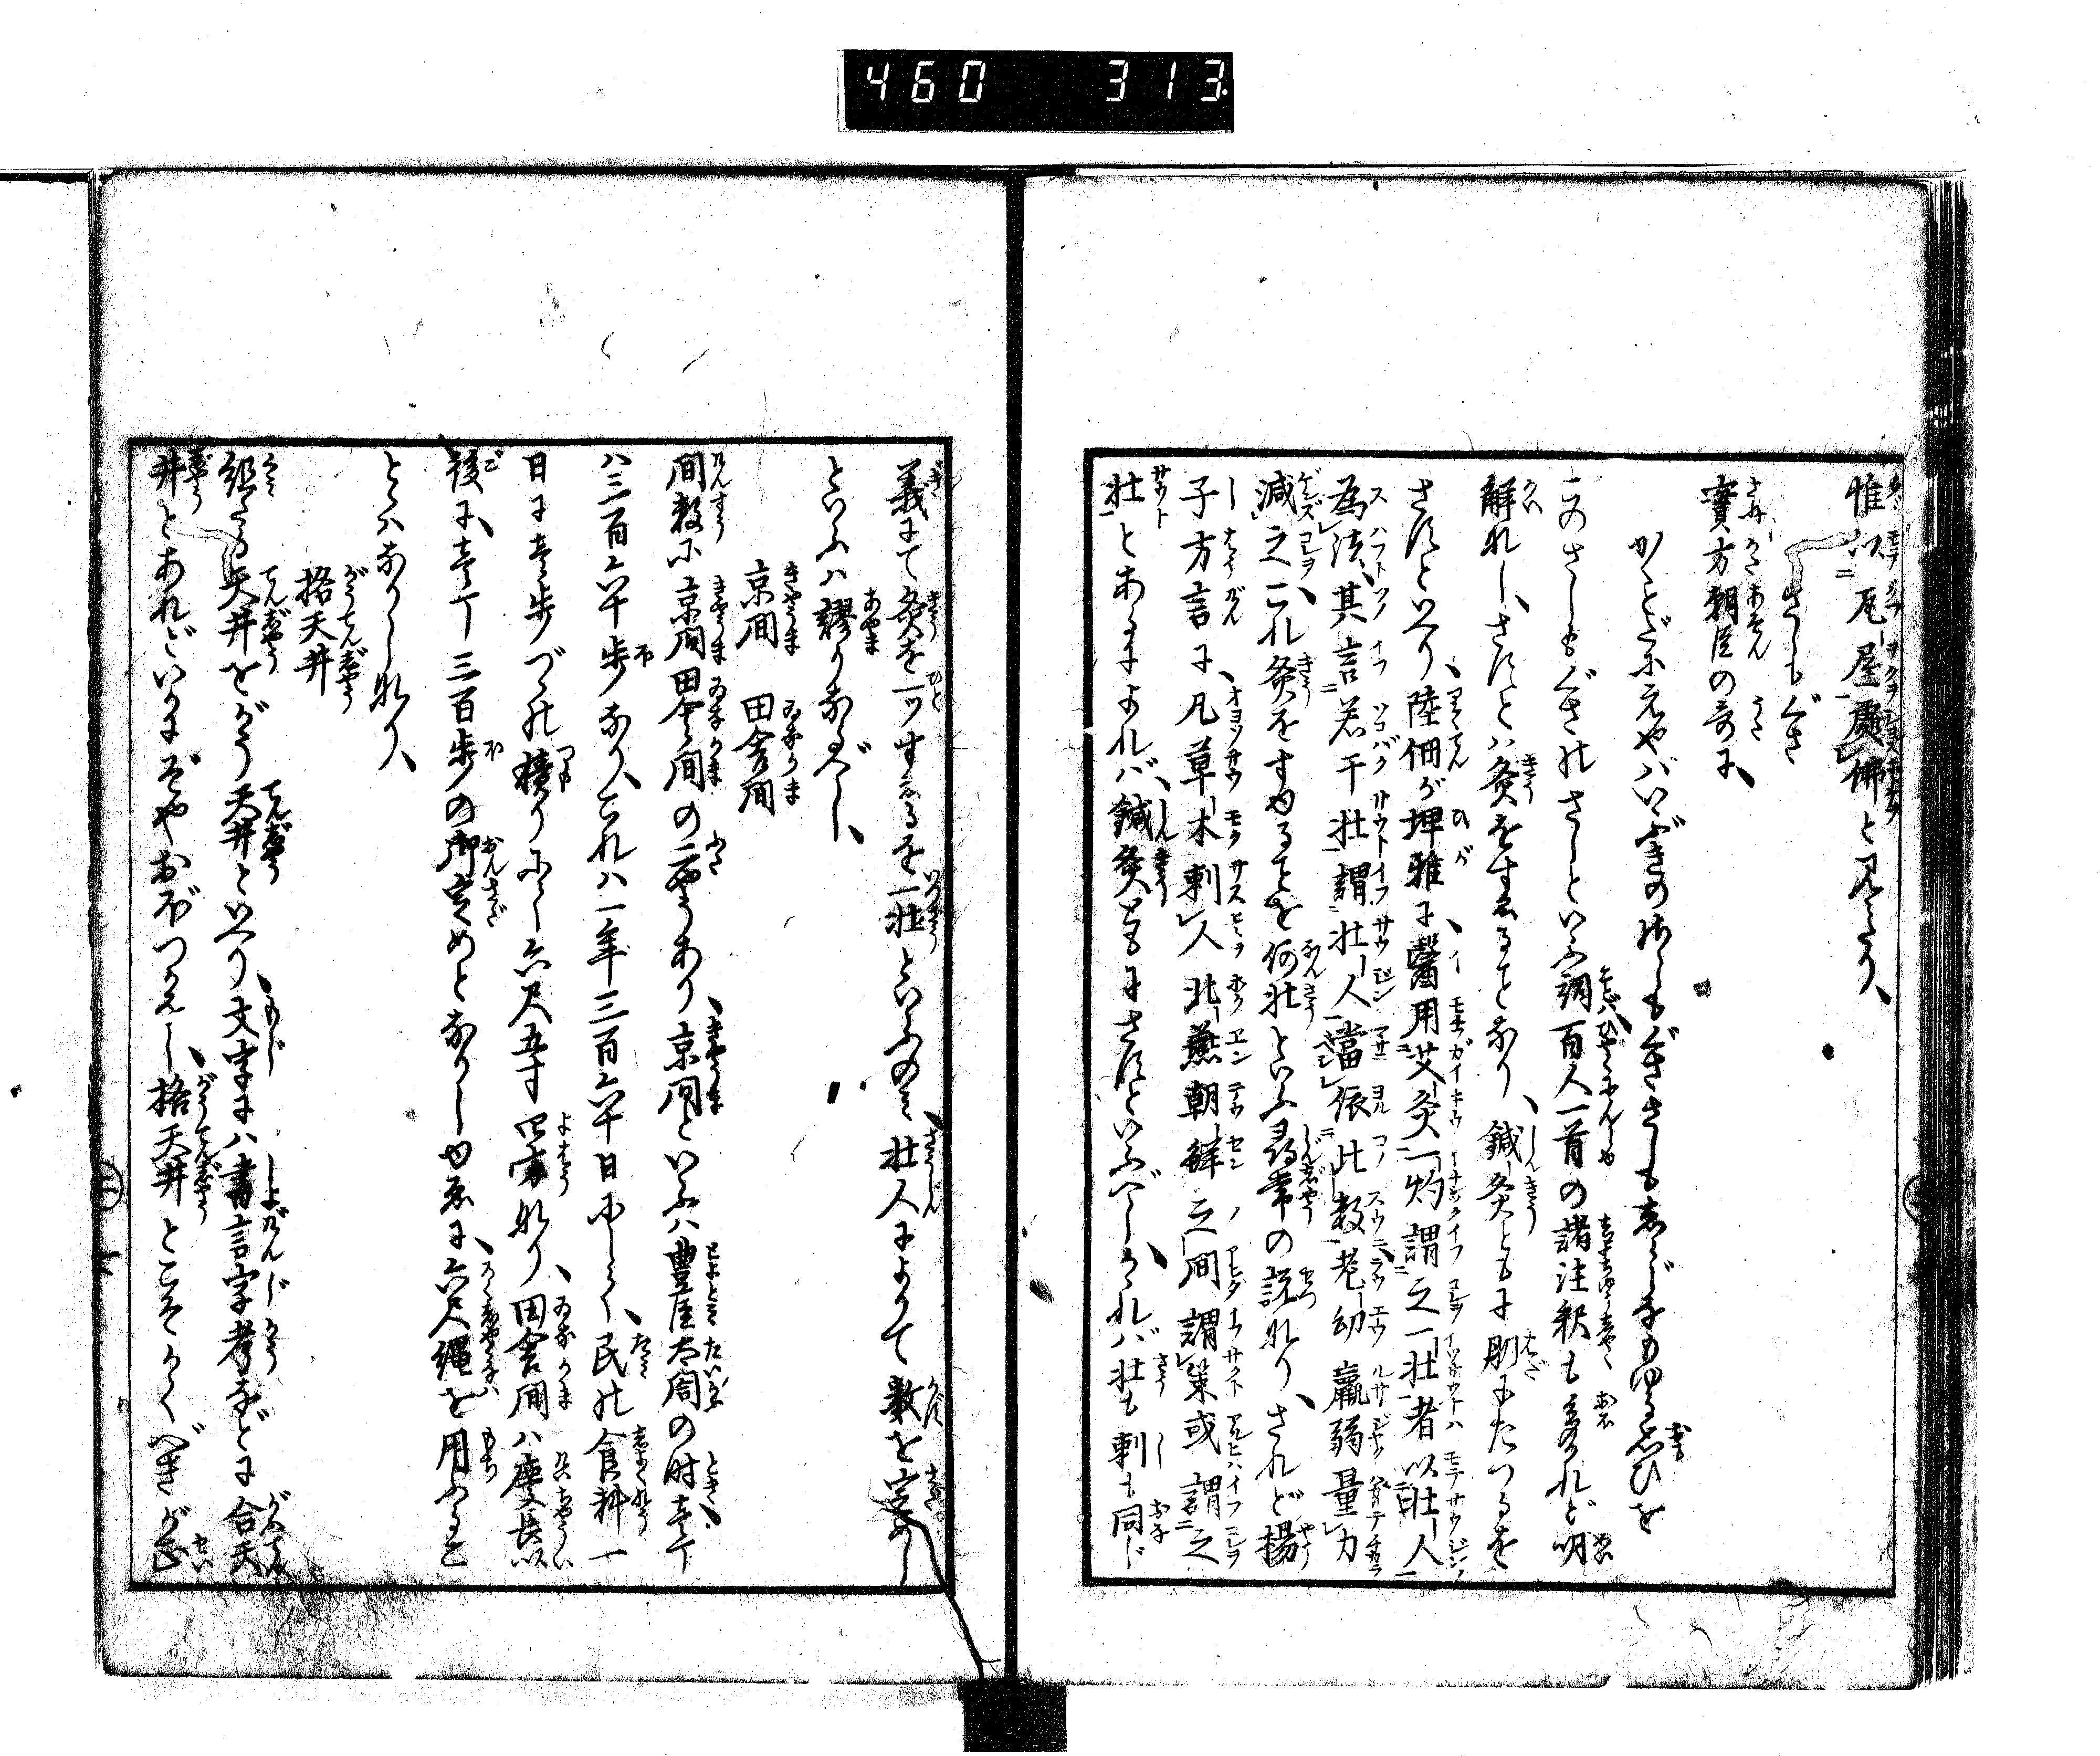 460 313
惟以瓦屋處佛と見えたり、
さしもぐさ
實方朝臣の哥に、
かくとだにえやはいぶきのさしもぐささしもしらじなもゆる思ひを
このさしもぐさのさしといふ詞百人一首の諸注釈も多かれど明
解なし、さすとは灸をすゑることなり、鍼灸ともに肌にたつるを
さすといへり、陸佃が埤雅に、醫用艾灸一灼謂之一壮者以壮人
為法、其言若干壮謂壮人當依此数老幼羸弱量力
減之、これ灸をすゑることを何壮といふ尋常の説なり、されど揚
子方言に、凡草木刺人北燕朝鮮之間謂策或謂之
壮とあるによれバ、鍼灸ともにさすといふべし、かゝれバ壮も刺も同じ
義にて灸を一ツすゑるを一壮といふのミ、壮人によりて数を定めし
といふハ謬りなるべし、
京間 田舎間
間数に京間田舎間の二やうあり、京間といふハ豊臣太閤の時壱丁
ハ三百六十歩なり、これハ一年三百六十日にして、民の食料一
日に壱歩づゝの積りにて六尺五寸四方なり、田舎間ハ慶長以
後に、壱丁三百歩の御定めとなりしゆゑに、六尺縄を用ふること
とハなりしなり、
格天井
組たる天井をがう天井といへり、文字にハ書言字考などに合天
井とあれどいかにぞやおぼつかなし、格天井とこそかくべきが正